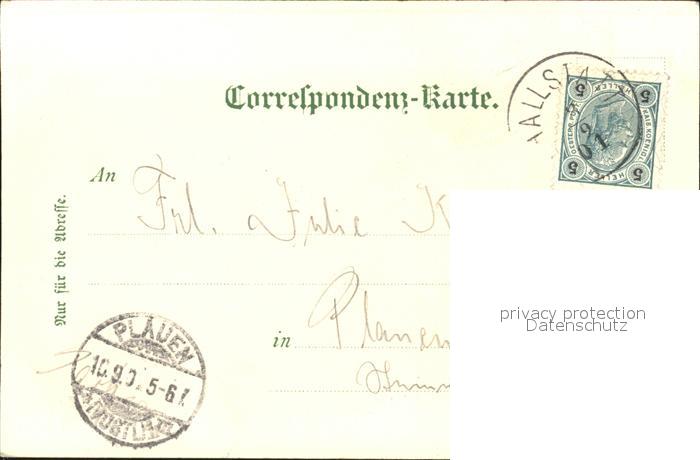 Correspondenz-Karte.
An
Frl. Julie K
in
Plauen
Nur für die Adresse.
PLAUEN
10.9.0 5-6
5 HELLER 5
KAIS. KOENIGL.
5 HELLER 5
privacy protection
Datenschutz